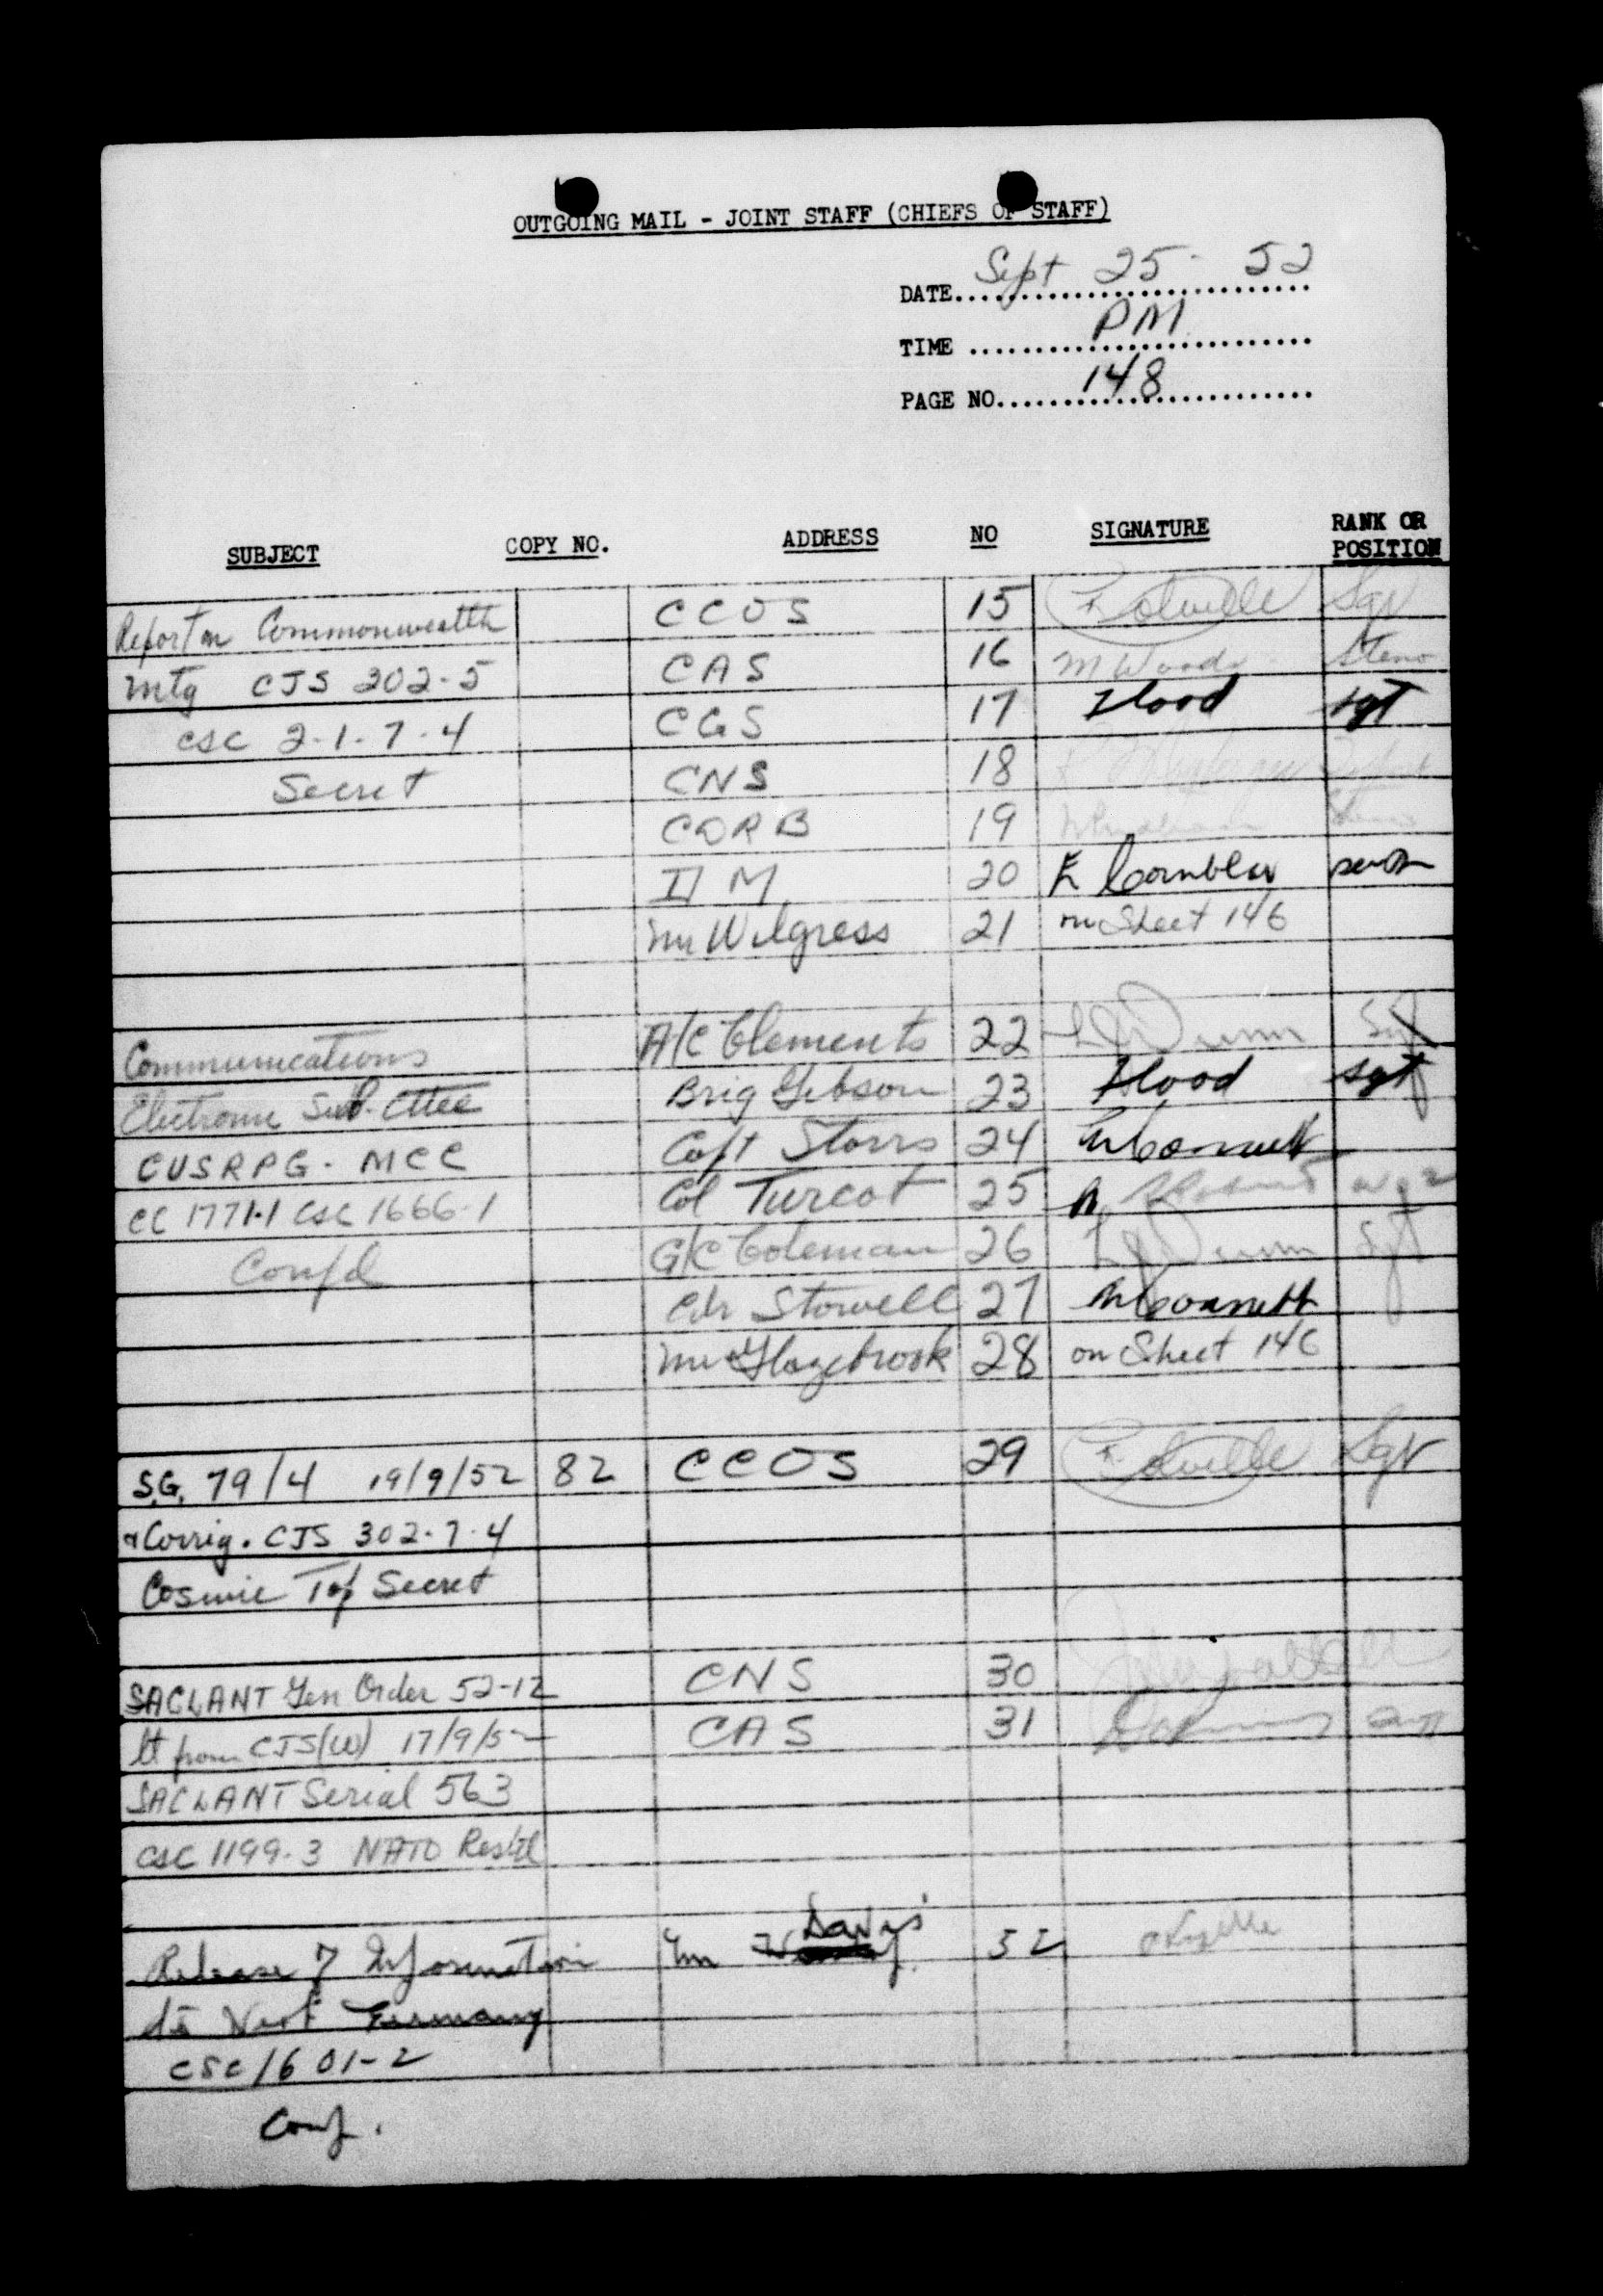 OUTGOING MAIL - JOINT STAFF (CHIEFS OF STAFF)
DATE Sept 25 - 52
TIME PM
PAGE NO. 148
SUBJECT COPY NO. ADDRESS NO SIGNATURE RANK OR POSITION
Report on Commonwealth CCOS 15
Mtg CJS 202-5 CAS 16 M Woods Steno
CSC 2-1-7-4 CGS 17 Flood Sgt
Secret CNS 18
CDRB 19
DM 20 sec
Mr Wilgress 21 on Sheet 146
Communications A/C Clements 22 Dunn Sgt
Electronic Sub-Cttee Brig Gibson 23 Flood Sgt
CUSRPG - MCC Capt Storrs 24
CC 1771-1 CSC 1666-1 Col Turcot 25
Conf'd G/C Coleman 26 Dunn Sgt
Cdr Stowell 27
Mr Glazebrook 28 on Sheet 146
S.G. 79/4 19/9/52 82 CCOS 29
& Corrig. CJS 302-7-4
Cosmic Top Secret
SACLANT Gen Order 52-12 CNS 30
lt from CJS(W) 17/9/52 CAS 31
SACLANT Serial 563
CSC 1199-3 NATO Rest'd
Release of Information Mr Davis 32
to West Germany
CSC 1601-2
Conf.